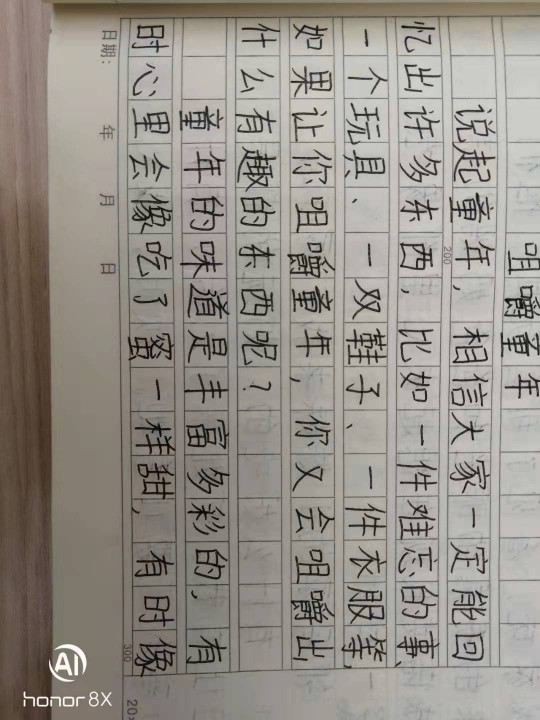 咀嚼童年
说起童年，相信大家一定能回
忆出许多东西，比如一件难忘的事、
一个玩具、一双鞋子、一件衣服等，
如果让你咀嚼童年，你又会咀嚼出
什么有趣的东西呢？
童年的味道是丰富多彩的，有
时心里会像吃了蜜一样甜，有时像
200
300
日期： 年 月 日
20×
AI
honor 8X